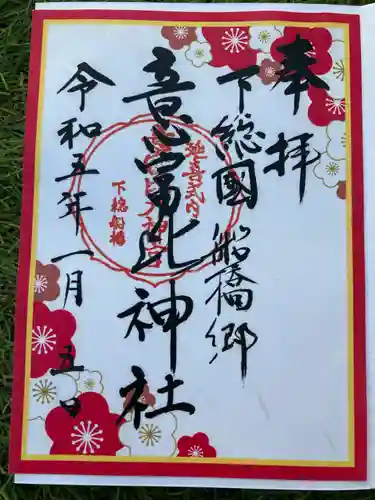 奉拝
下總國 船橋郷
意富比神社
令和五年一月五日
延喜式内
下総船橋